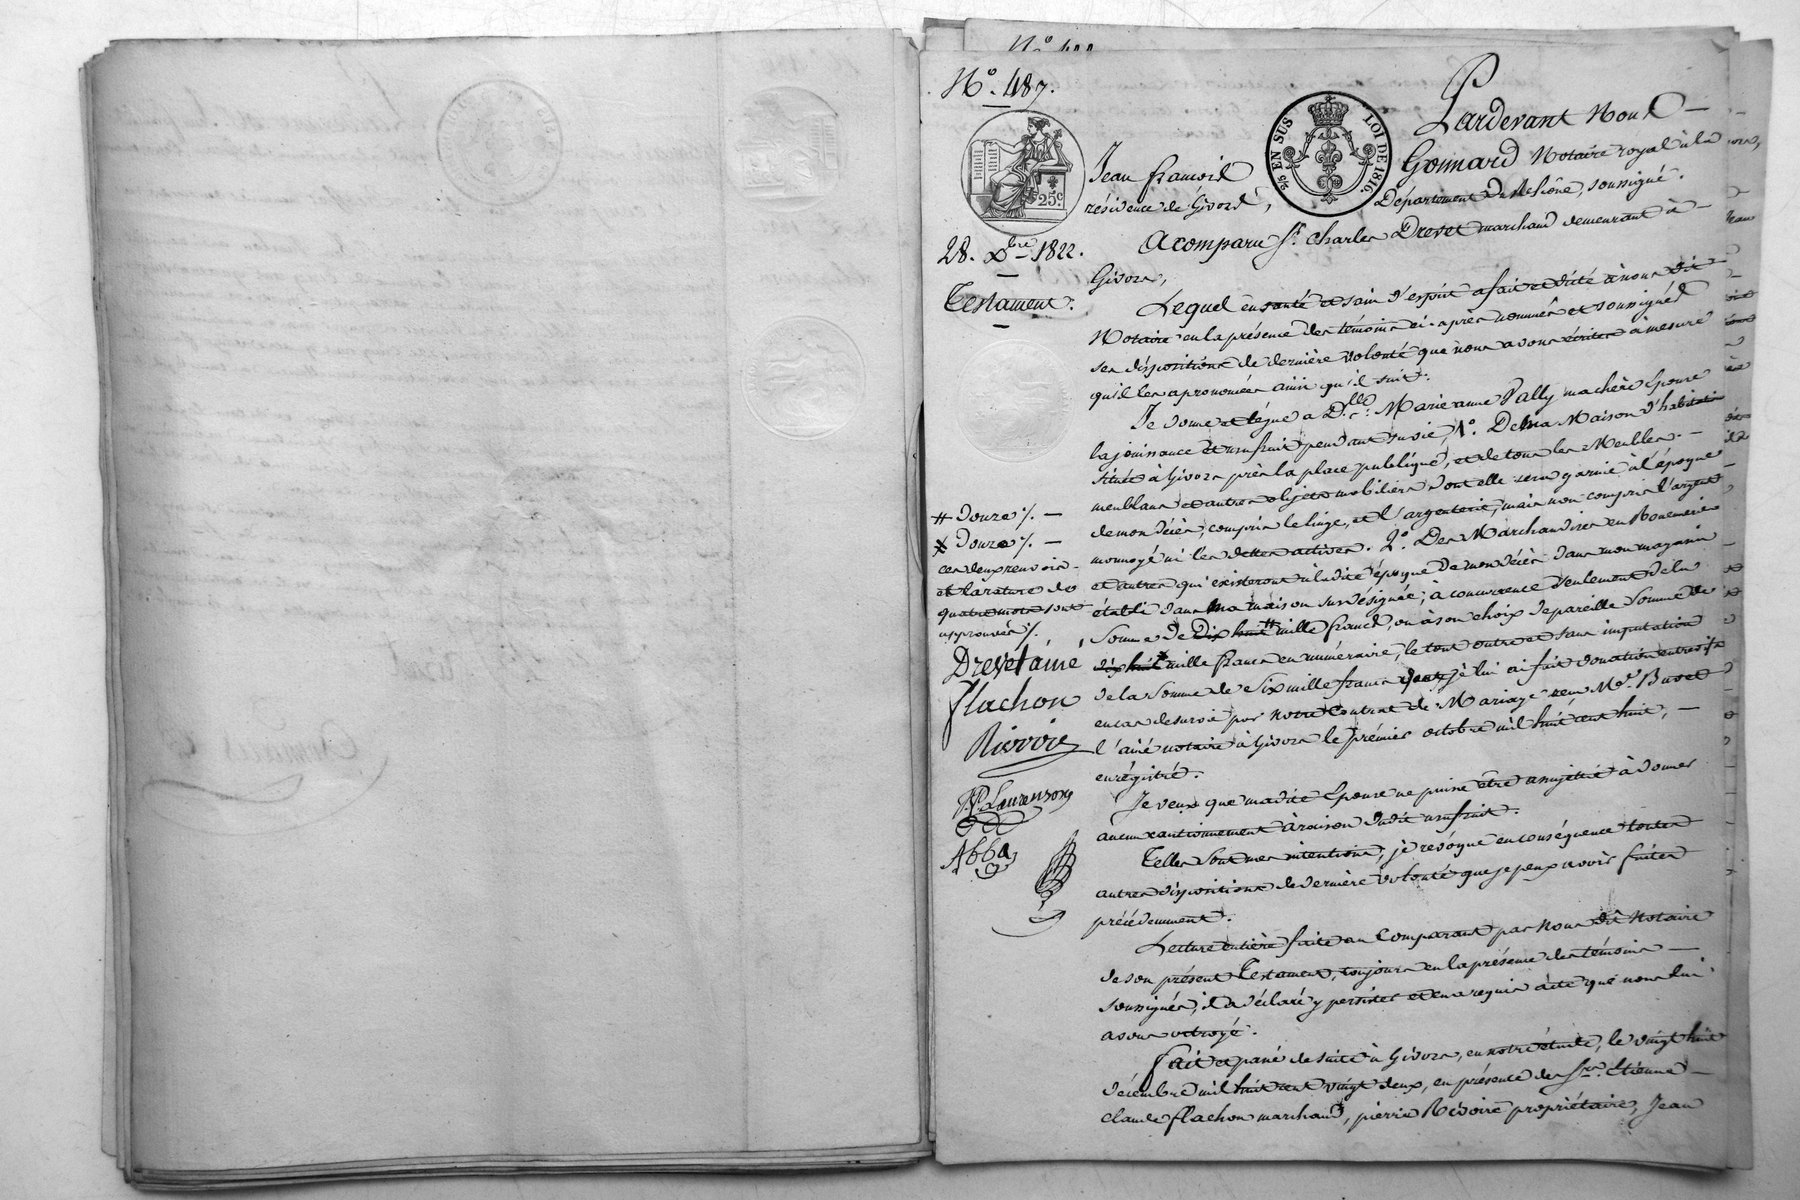 N° 487.
28. Xbre 1822.
Testament.
25 EN SUS LOI DE 1816.
25 c
Pardevant Nous
Jean françois Gonnard Notaire royal à la
résidence de Givors, Département du Rhône, soussigné.
A comparu Sr. Charles Drevet marchand demeurant à
Givors,
Lequel en santé et sain d'esprit a fait et dicté à nous dit
Notaire en la présence des témoins ci-après nommés et soussignés
ses dispositions de dernière volonté que nous avons écrites à mesure
qu'il les a prononcées ainsi qu'il suit.
Je donne et lègue a D.lle Marieanne Pally ma chère épouse
la jouissance et usufruit pendant sa vie, 1°. De Ma Maison d'habitation
située à Givors près la place publique, et de tous les Meubles
meublans et autres objets mobiliers dont elle sera garnie à l'époque
de mon décès, compris le linge, et l'argenterie, mais non compris l'argent
monnoyé ni les dettes actives. 2°. Des Marchandises en Rouennerie
et autres qui existeront à la dite époque de mon décès dans mon magasin
établi dans ma maison sus désignée; à concurrence seulement de la
Somme de Dix huit # mille francs, ou à son choix de pareille Somme de
dix huit X mille francs en numéraire, le tout outre et sans imputation
de la Somme de Six mille francs dont je lui ai fait donation entrevifs
en cas de survie par notre Contrat de Mariage reçu Me. Buvet
l'ainé notaire à Givors le prémier octobre mil huit cent huit,
enrégistré.
Je veux que madite épouse ne puisse être assujettie à donner
aucun cautionnement à raison dudit usufruit.
Telles sont mes intentions, je révoque en conséquence toutes
autres dispositions de dernière volonté que je peux avoir faites
précédemment.
Lecture entière faite au Comparant par Nous dit Notaire
de son présent Testament, toujours en la présence des témoins
soussignés, il a déclaré y persister et en a requis acte que nous lui
avons octroyé.
Fait et passé de suite à Givors, en notre étude, le vingt huit
décembre mil huit cent vingt deux, en présence de Srs. Etienne
claude flachon marchand, pierre Rivoire propriétaire, Jean
# douze /. —
X douze /. —
ces deux renvois
et la rature de
quatre mots sont
approuvés /.
Drevet ainé
flachon
Rivoire
Laurenson
Abba